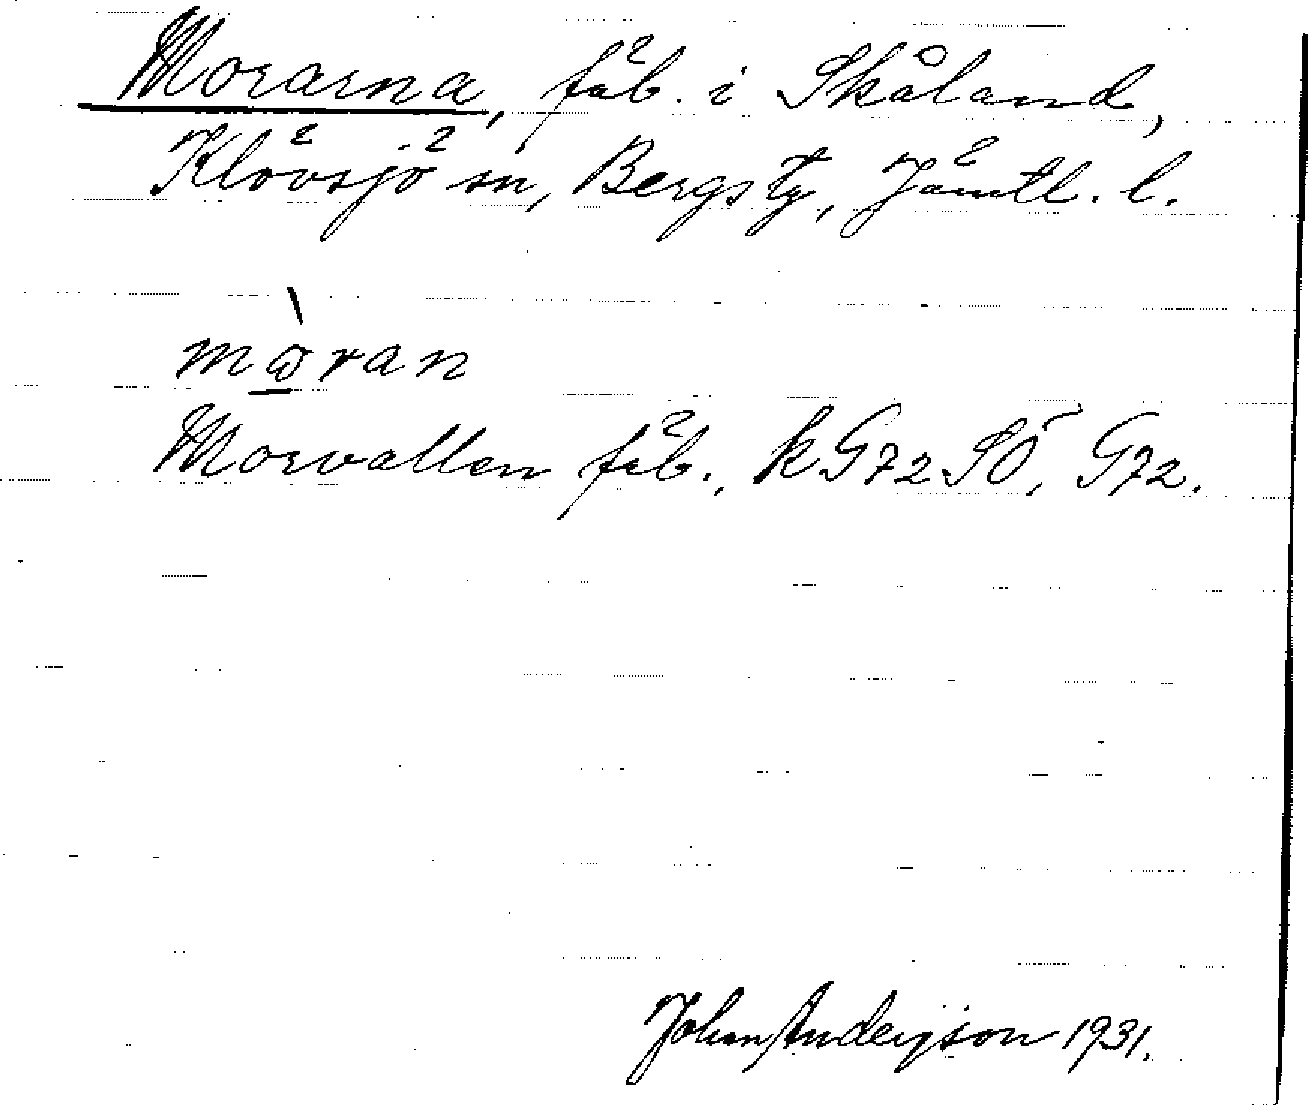 Morarna, fäb. i Skåland,
Klövsjö sn, Bergs tg, Jämtl. l.
mòran
Morvallen fäb., kG72SÖ, G72.
Johan Andersson 1931.